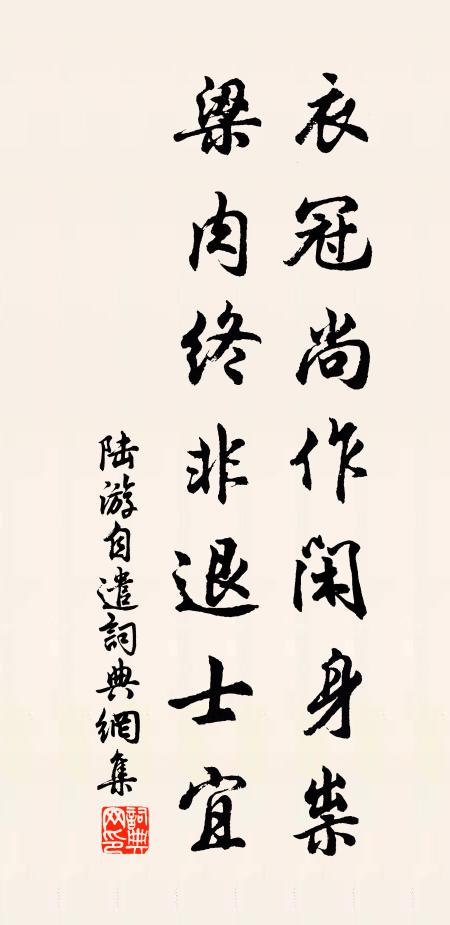 衣冠尚作闲身祟
梁肉终非退士宜
陆游自遣詞典網集
詞典网印